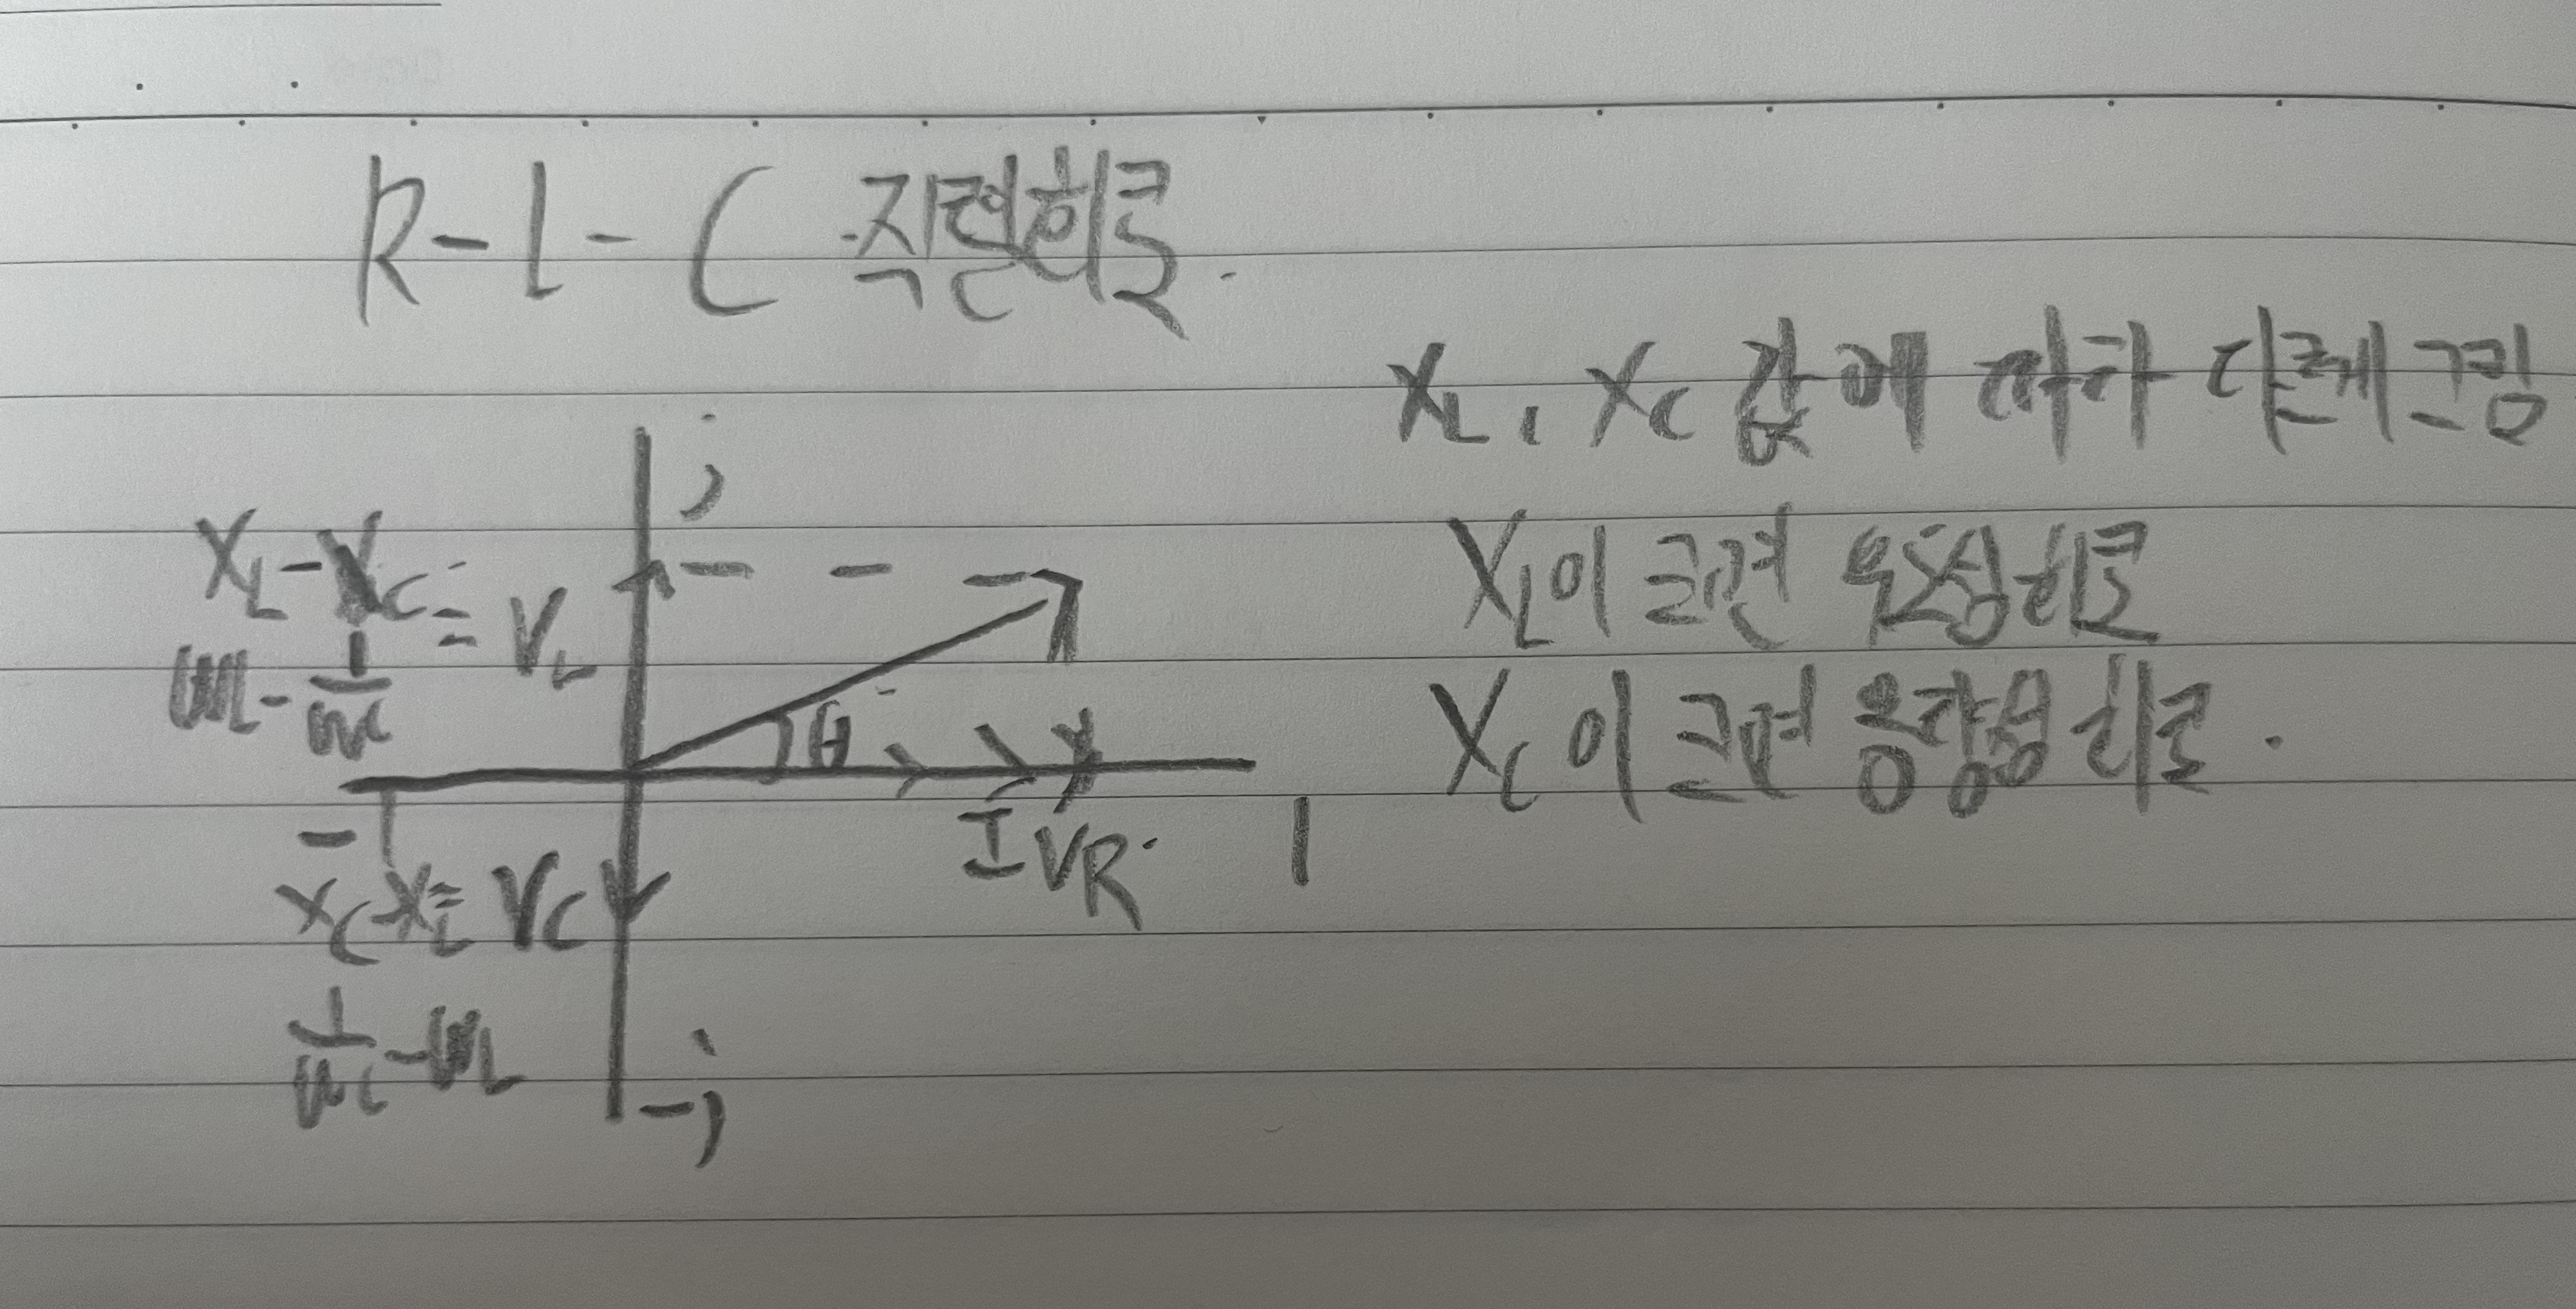 R-L-C 직렬회로.
XL, XC 값에 따라 다르게 그림
XL이 크면 유도성회로
XC이 크면 용량성 회로.
j
XL-XC = VL
WL - 1/WC
θ
I VR
1
-
XC-XL = VC
1/WC - WL
-j